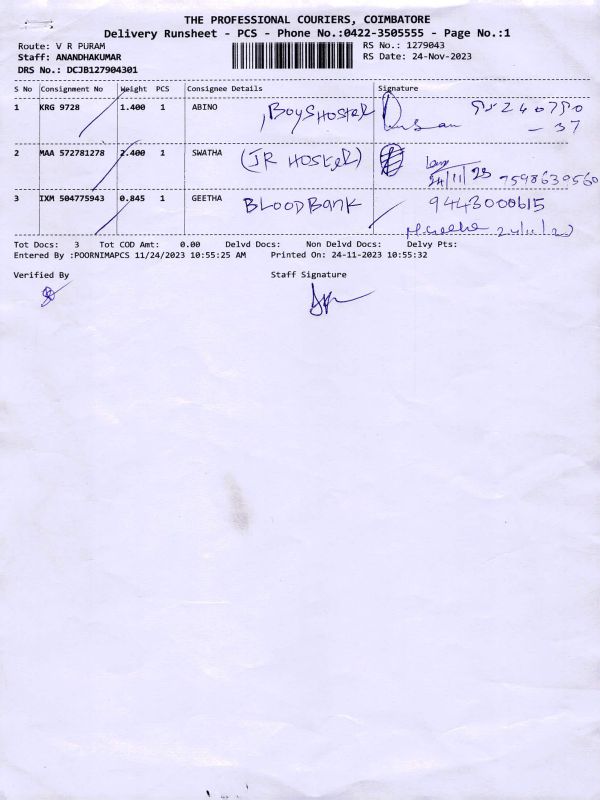 THE PROFESSIONAL COURIERS, COIMBATORE
Delivery Runsheet - PCS - Phone No.:0422-3505555 - Page No.:1
Route: V R PURAM RS No.: 1279043
Staff: ANANDHAKUMAR RS Date: 24-Nov-2023
DRS No.: DCJB127904301
S No Consignment No Weight PCS Consignee Details Signature
1 KRG 9728 1.400 1 ABINO BOYS HOSTEL
- 37
2 MAA 572781278 2.400 1 SWATHA (JR HOSTEL)
24/11/23 7598639560
3 IXM 504775943 0.845 1 GEETHA BLOOD BANK 9443000615
Tot Docs: 3 Tot COD Amt: 0.00 Delvd Docs: Non Delvd Docs: Delvy Pts:
Entered By :POORNIMAPCS 11/24/2023 10:55:25 AM Printed On: 24-11-2023 10:55:32
Verified By Staff Signature